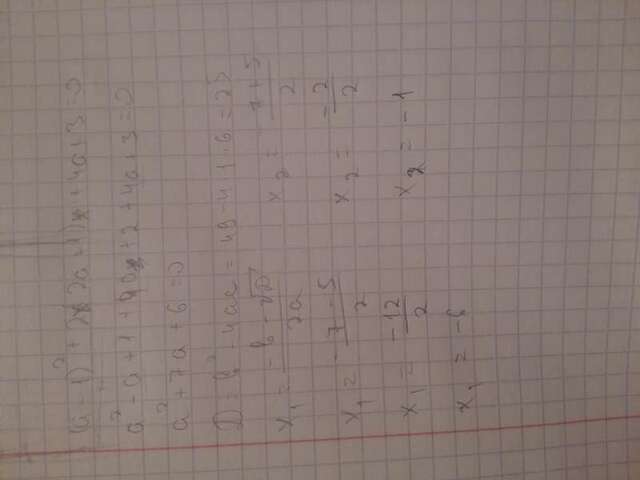 (a - 1)² + 2(2a + 1)x + 4a + 3 = 0
a² - a + 1 + 4ax + 2 + 4a + 3 = 0
a² + 7a + 6 = 0
D = b² - 4ac = 49 - 4·1·6 = 25
x₁ = (-b - √D)/2a x₂ = (-7 + 5)/2
x₁ = (-7 - 5)/2 x₂ = -2/2
x₁ = -12/2 x₂ = -1
x₁ = -6